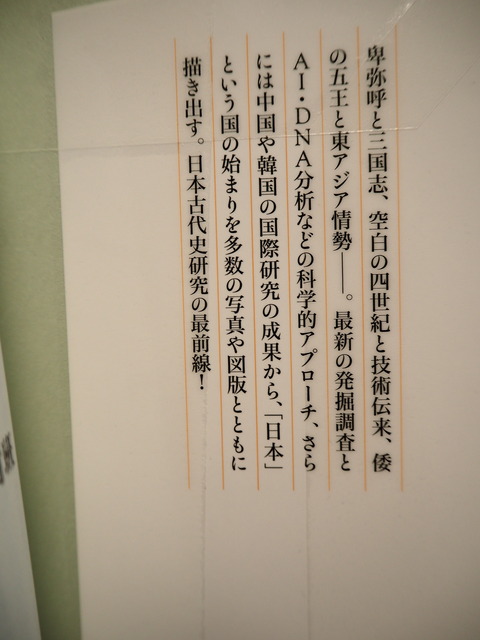 卑弥呼と三国志、空白の四世紀と技術伝来、倭
の五王と東アジア情勢――。最新の発掘調査と
AI・DNA分析などの科学的アプローチ、さら
には中国や韓国の国際研究の成果から、「日本」
という国の始まりを多数の写真や図版とともに
描き出す。日本古代史研究の最前線！